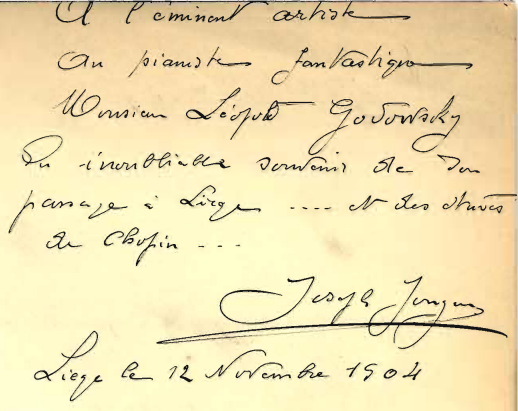 A l'éminent artiste
Au pianiste fantastique
Monsieur Léopold Godowsky
En inoubliable souvenir de son
passage à Liège .... et des études
de Chopin ...
Joseph Jongen
Liège le 12 Novembre 1904